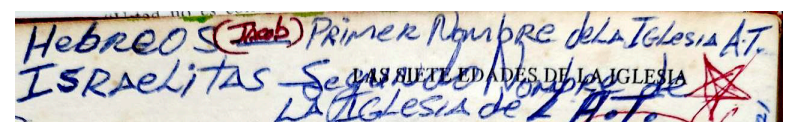 HebReOS (Jacob) PRiMeR NoMbRE deLA IGLesiA A.T.
ISRAeLitAS Segundo NoMbRe de
LAS SIETE EDADES DE LA IGLESIA
LA IGLeSiA de L A.T.